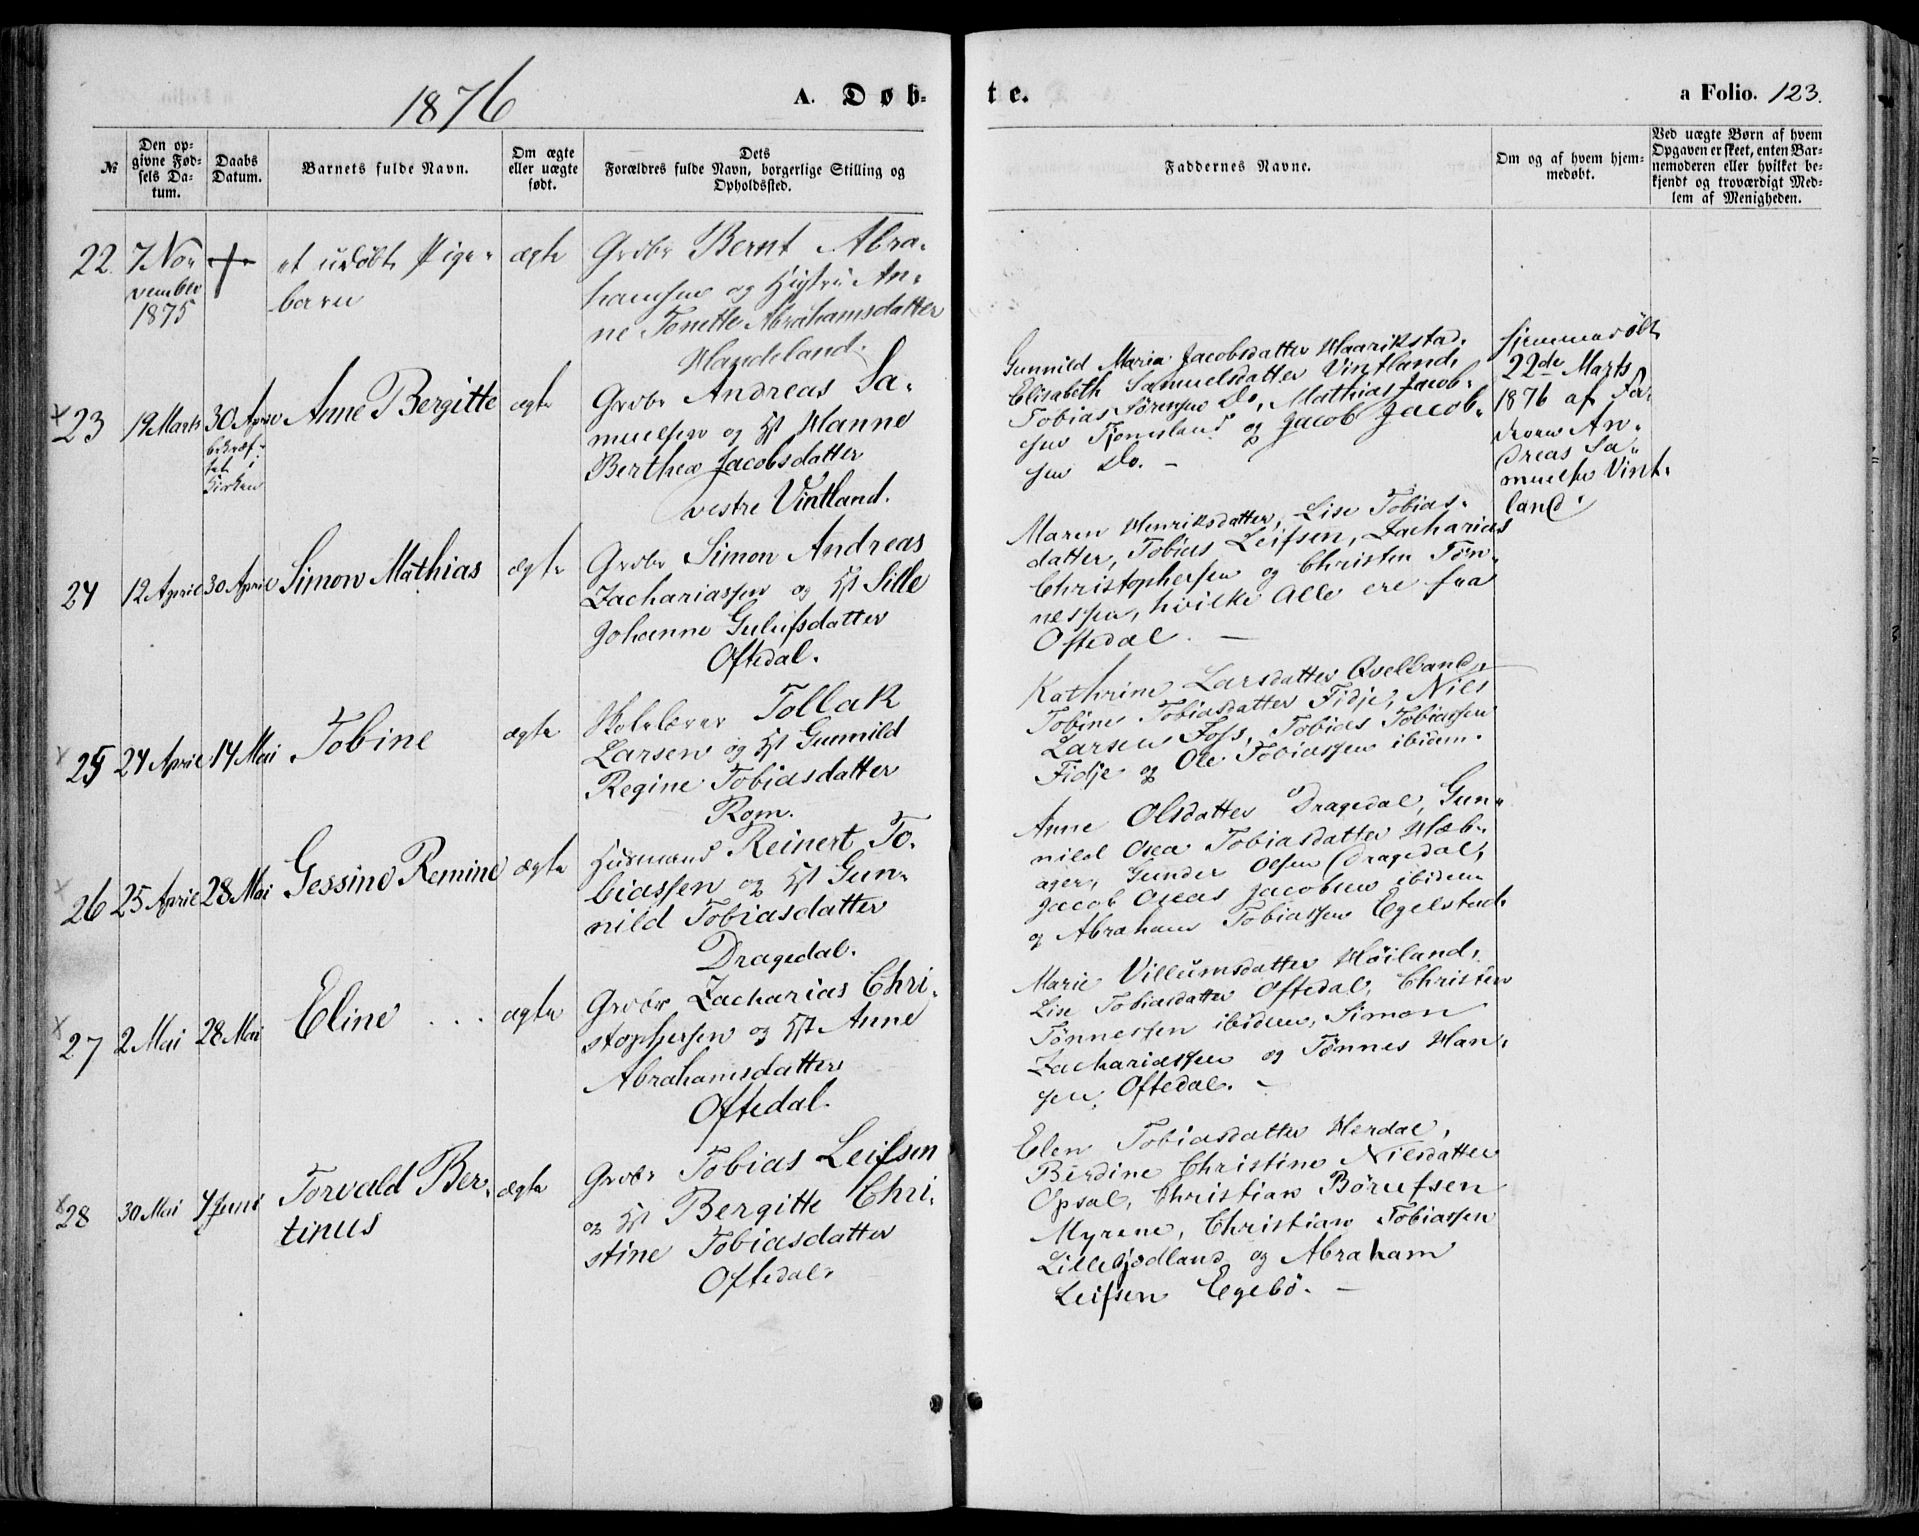 1876
A. Døb-
te.
a Folio. 123.
№
Den op-
givne Fød-
sels Da-
tum.
Daabs
Datum.
Barnets fulde Navn.
Om ægte
eller uægte
født.
Dets
Forældres fulde Navn, borgerlige Stilling og
Opholdssted.
Faddernes Navne.
Om og af hvem hjem-
medøbt.
Ved uægte Børn af hvem
Opgaven er skeet, enten Bar-
nemoderen eller hvilket be-
kjendt og troværdigt Med-
lem af Menigheden.
22.
7 No-
vember
1875
et udøbt Pige-
barn
ægte
Grdbr Bernt Abra-
hamsen og Hustru An-
ne Tonette Abrahamsdatter
Handeland.
23
19 Marts
30 April
bekræf-
tet i
Kirken
Anne Bergitte
ægte
Grdbr Andreas Sa-
muelsen og Hst Hanne
Berthea Jacobsdatter
vestre Vintland.
Gunnild Maria Jacobsdatter Haarikstad,
Elisabeth Samuelsdatter Vintland,
Tobias Sørensen Do, Mathias Jacob-
sen Tjomsland og Jacob Jacob-
sen Do. -
Hjemmedøbt
22de Marts
1876 af Fa-
deren An-
dreas Sa-
muelsen Vint-
land.
24
12 April
30 April
Simon Mathias
ægte
Grdbr Simon Andreas
Zachariassen og Hst Sille
Johanne Guleifsdatter
Oftedal.
Maren Henriksdatter, Lise Tobias-
datter, Tobias Leifsen, Zacharias
Christophersen og Christen Tøn-
nessen, hvilke Alle ere fra
Oftedal. -
25
24 April
14 Mai
Tobine
ægte
Skolelærer Tollak
Larsen og Hst Gunnild
Regine Tobiasdatter
Rom.
Kathrine Larsdatter Qvelland,
Tobine Tobiasdatter Fidje, Niels
Larsen Foss, Tobias Tobiassen
Fidje og Ole Tobiassen ibidem.
26
25 April
28 Mai
Gessine Remine
ægte
Husmand Reinert To-
biassen og Hst Gun-
nild Tobiasdatter
Dragedal.
Anne Olsdatter Dragedal, Gun-
nild Osea Tobiasdatter Hæb-
ager, Gunder Olsen Dragedal,
Jacob Oseas Jacobsen ibidem
og Abraham Tobiassen Egelstad.
27
2 Mai
28 Mai
Eline . . .
ægte
Grdbr Zacharias Chri-
stophersen og Hst Anne
Abrahamsdatter
Oftedal.
Marie Villumsdatter Høiland,
Lise Tobiasdatter Oftedal, Christen
Tønnessen ibidem, Simon
Zachariassen og Tønnes Han-
sen, Oftedal. -
28
30 Mai
4 Juni
Torvald Ber-
tinus
ægte
Grdbr Tobias Leifsen
og Hst Bergitte Chri-
stine Tobiasdatter
Oftedal.
Elen Tobiasdatter Herdal,
Berdine Christine Nilsdatter
Opsal, Christian Børufsen
Myrene, Christian Tobiassen
Lillebjodland og Abraham
Leifsen Egebø. -